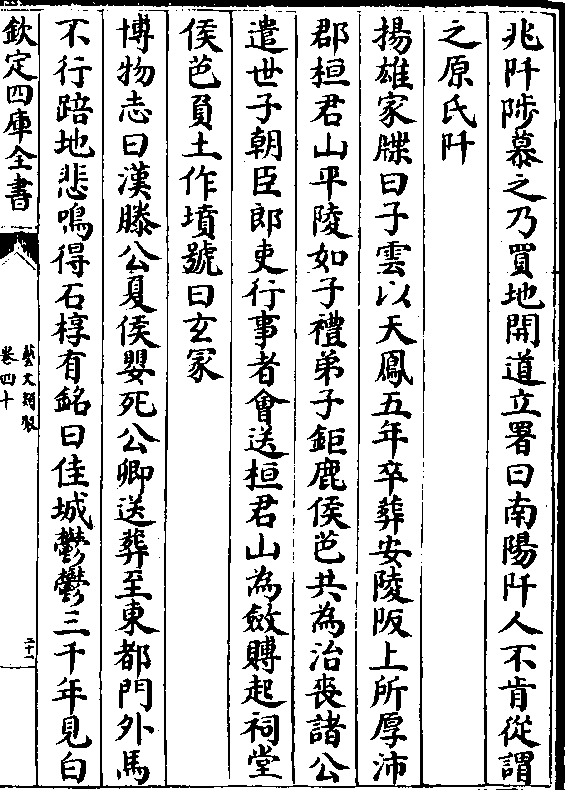 兆阡陟慕之乃買地開道立署曰南陽阡人不肯從謂
之原氏阡
揚雄家牒曰子雲以天鳳五年卒葬安陵阪上所厚沛
郡桓君山平陵如子禮弟子鉅鹿侯芭共為治喪諸公
遣世子朝臣郎吏行事者會送桓君山為斂賻起祠堂
侯芭負土作墳號曰玄冢
博物志曰漢滕公夏侯嬰死公卿送葬至東都門外馬
不行踣地悲鳴得石椁有銘曰佳城鬱鬱三千年見白
欽定四庫全書
藝文類聚
卷四十
二十二